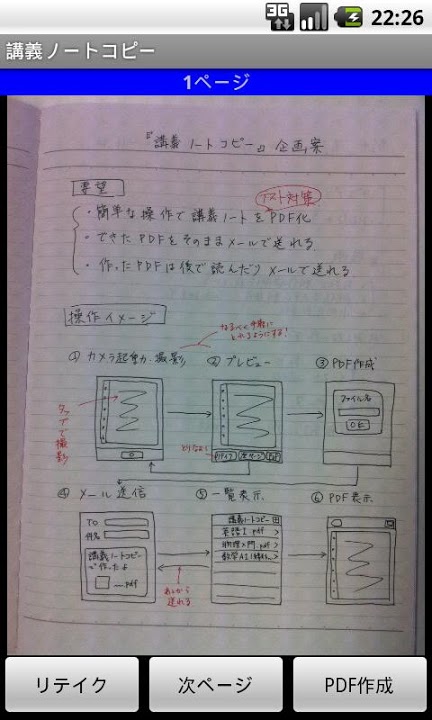 3G 22:26
講義ノートコピー
1ページ
『講義ノートコピー』企画案
要望
テスト対策
・簡単な操作で講義ノートをPDF化
・できたPDFをそのままメールで送れる
・作ったPDFは後で読んだりメールで送れる
操作イメージ
なるべく手軽に
とれるようにする!
① カメラ起動・撮影
② プレビュー
③ PDF作成
タップで撮影
ファイル名
OK
とりなおし
リテイク 次ページ
④ メール送信
⑤ 一覧表示
⑥ PDF表示
TO
件名
講義ノートコピー
で作ったよ
.pdf
講義ノートコピー
英語I.pdf >
物理入門.pdf >
あとから
送れる
リテイク
次ページ
PDF作成